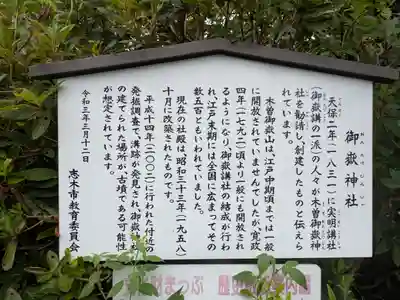 御嶽神社
おんたけじんじゃ
天保二年(一八三一)に実明講社
(御嶽講の一派)の人々が木曽御嶽神
社を勧請し創建したものと伝えら
れています。
木曽御嶽山は、江戸中期頃までは一般
に開放されていませんでしたが、寛政
四年(一七九二)頃より一般にも開放され
るようになり、御嶽講社の結成が行わ
れ、江戸末期には全国に広まってその
数五百ともいわれていました。
現在の社殿は、昭和三十三年(一九五八)
十月に改築されたものです。
平成十四年(二〇〇二)に行われた付近の
発掘調査で、溝跡が発見され、御嶽神社
の建てられた場所が、古墳である可能性
が想定されています。
令和三年三月十二日
志木市教育委員会